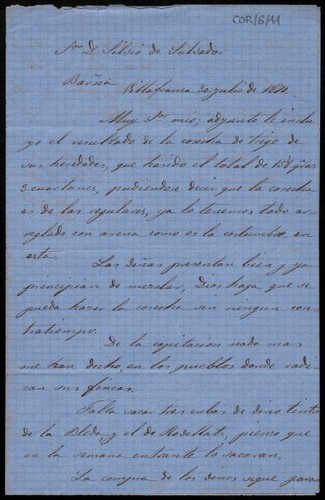 COR/6/11
Sr. D. Silvió de Salvador
Barña
Villafranca 20 julio de 1871.
Muy Sr. mio; adjunto le inclu
yo el resultado de la cosecha de trigo de
sus heredades, que hando el total de 158 qras
3. cuartanes, pudiendose decir que la cosecha
es de las regulares, ya lo tenemos todo ar
reglado con arena como es la costumbre en
esta.
Las viñas presentan bien y ya
principian de mezclar, Dios haga que se
pueda hacer la cosecha sin ningun con
tratiempo.
De la capitacion nada mas
me han dicho, en los pueblos donde radi
can sus fincas.
Falta sacar tres cubas de vino tinto
de la Bleda y el de Rodellat, pienso que
en la semana entrante lo sacaran.
La compra de los vinos sigue para